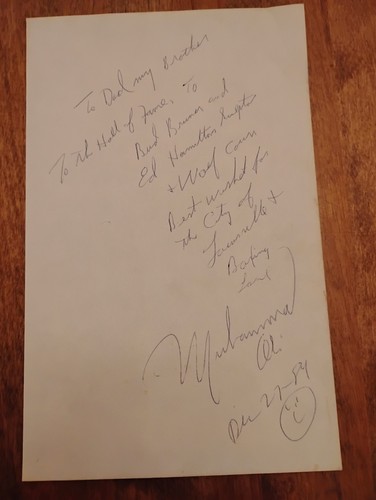 To Deal my Brother
To the Hall of Fame, To
Bud Bruner and
Ed Hamilton Sculptor
+ Walf
Best wishes for
the City of
Louisville +
Muhammad
Ali
Dec 27-84